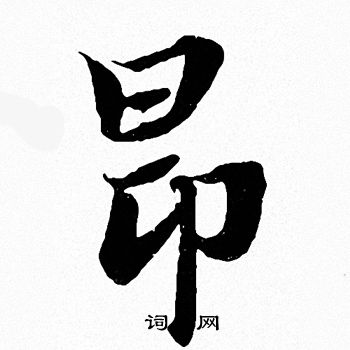 昂
词网